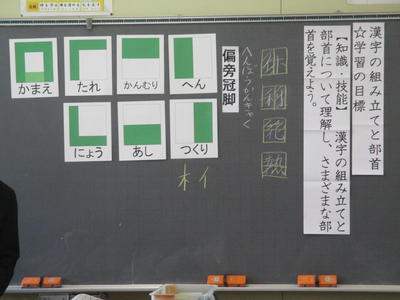 漢字の組み立てと部首
☆学習の目標
【知識・技能】 漢字の組み立てと
部首について理解し、さまざまな部
首を覚えよう。
熱
偏旁冠脚
へんぼうかんきゃく
へん
かんむり
たれ
かまえ
つくり
あし
にょう
木 イ